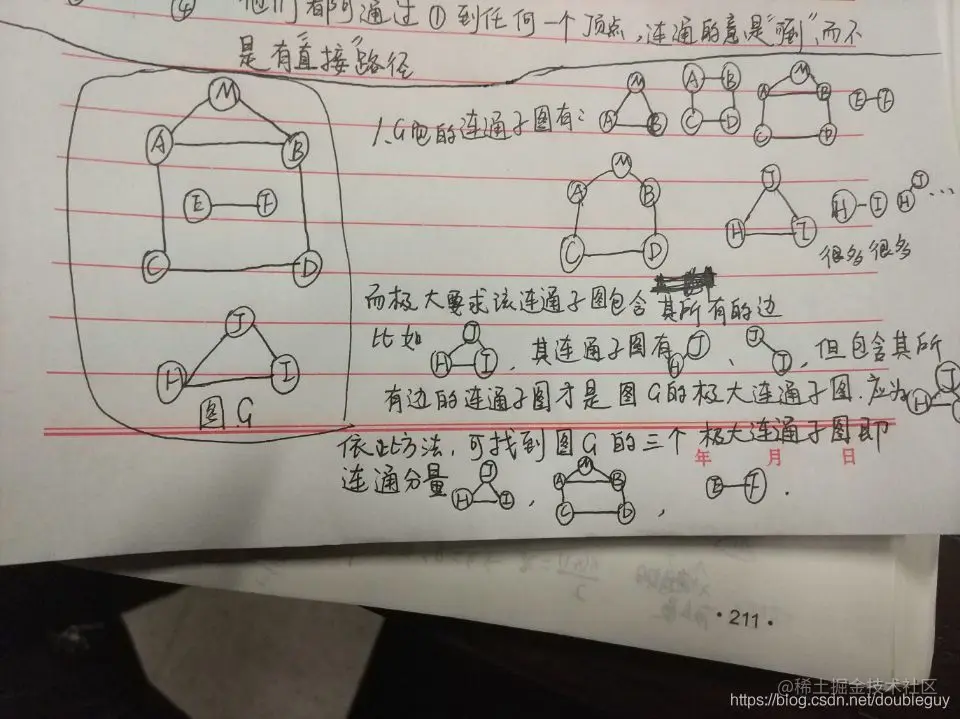 ④ 他们都可通过①到任何一个顶点,连通的意是"到",而不
是有"直接"路径
M
A B
E F
C D
J
H I
图G
1、G的连通子图有:
M A B
A B C D
M A B C D
E F
M A B C D
J H I
H I
H J ...
很多很多
而极大要求该连通子图包含其所有的边
比如 J H I ,其连通子图有 H J 、 J I ,但包含其所
有边的连通子图才是图G的极大连通子图.应为 J H
依此方法,可找到图G的三个极大连通子图即
年 月 日
连通分量 J H I , M A B C D , E F .
·211·
@稀土掘金技术社区
https://blog.csdn.net/doubleguy